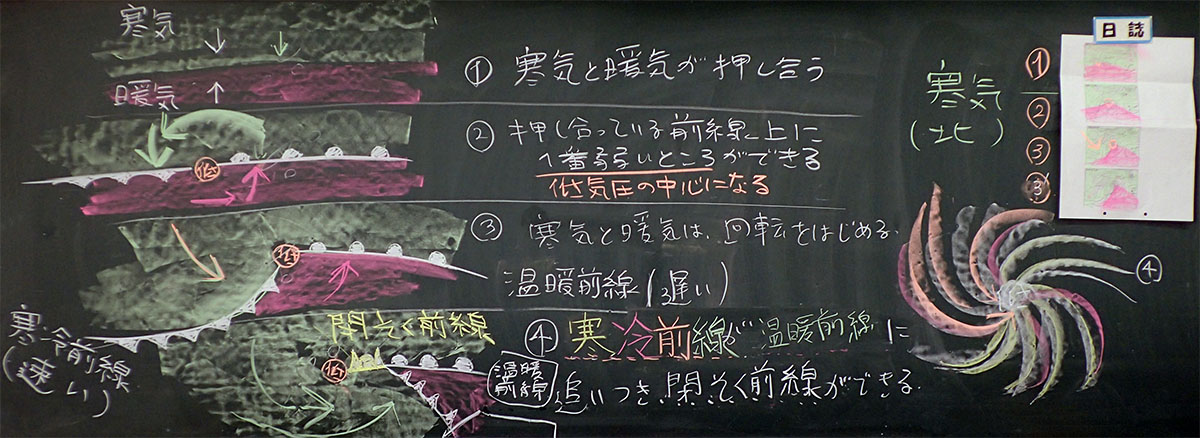 寒気
暖気
① 寒気と暖気が押し合う
② 押し合っている前線上に
1番弱いところができる
低気圧の中心になる
低
③ 寒気と暖気は、回転をはじめる。
温暖前線(遅い)
低
寒冷前線
(速い)
閉そく前線
低
温暖
前線
④ 寒冷前線が温暖前線に
追いつき閉そく前線ができる。
寒気
(北)
日誌
①
②
③
③
④